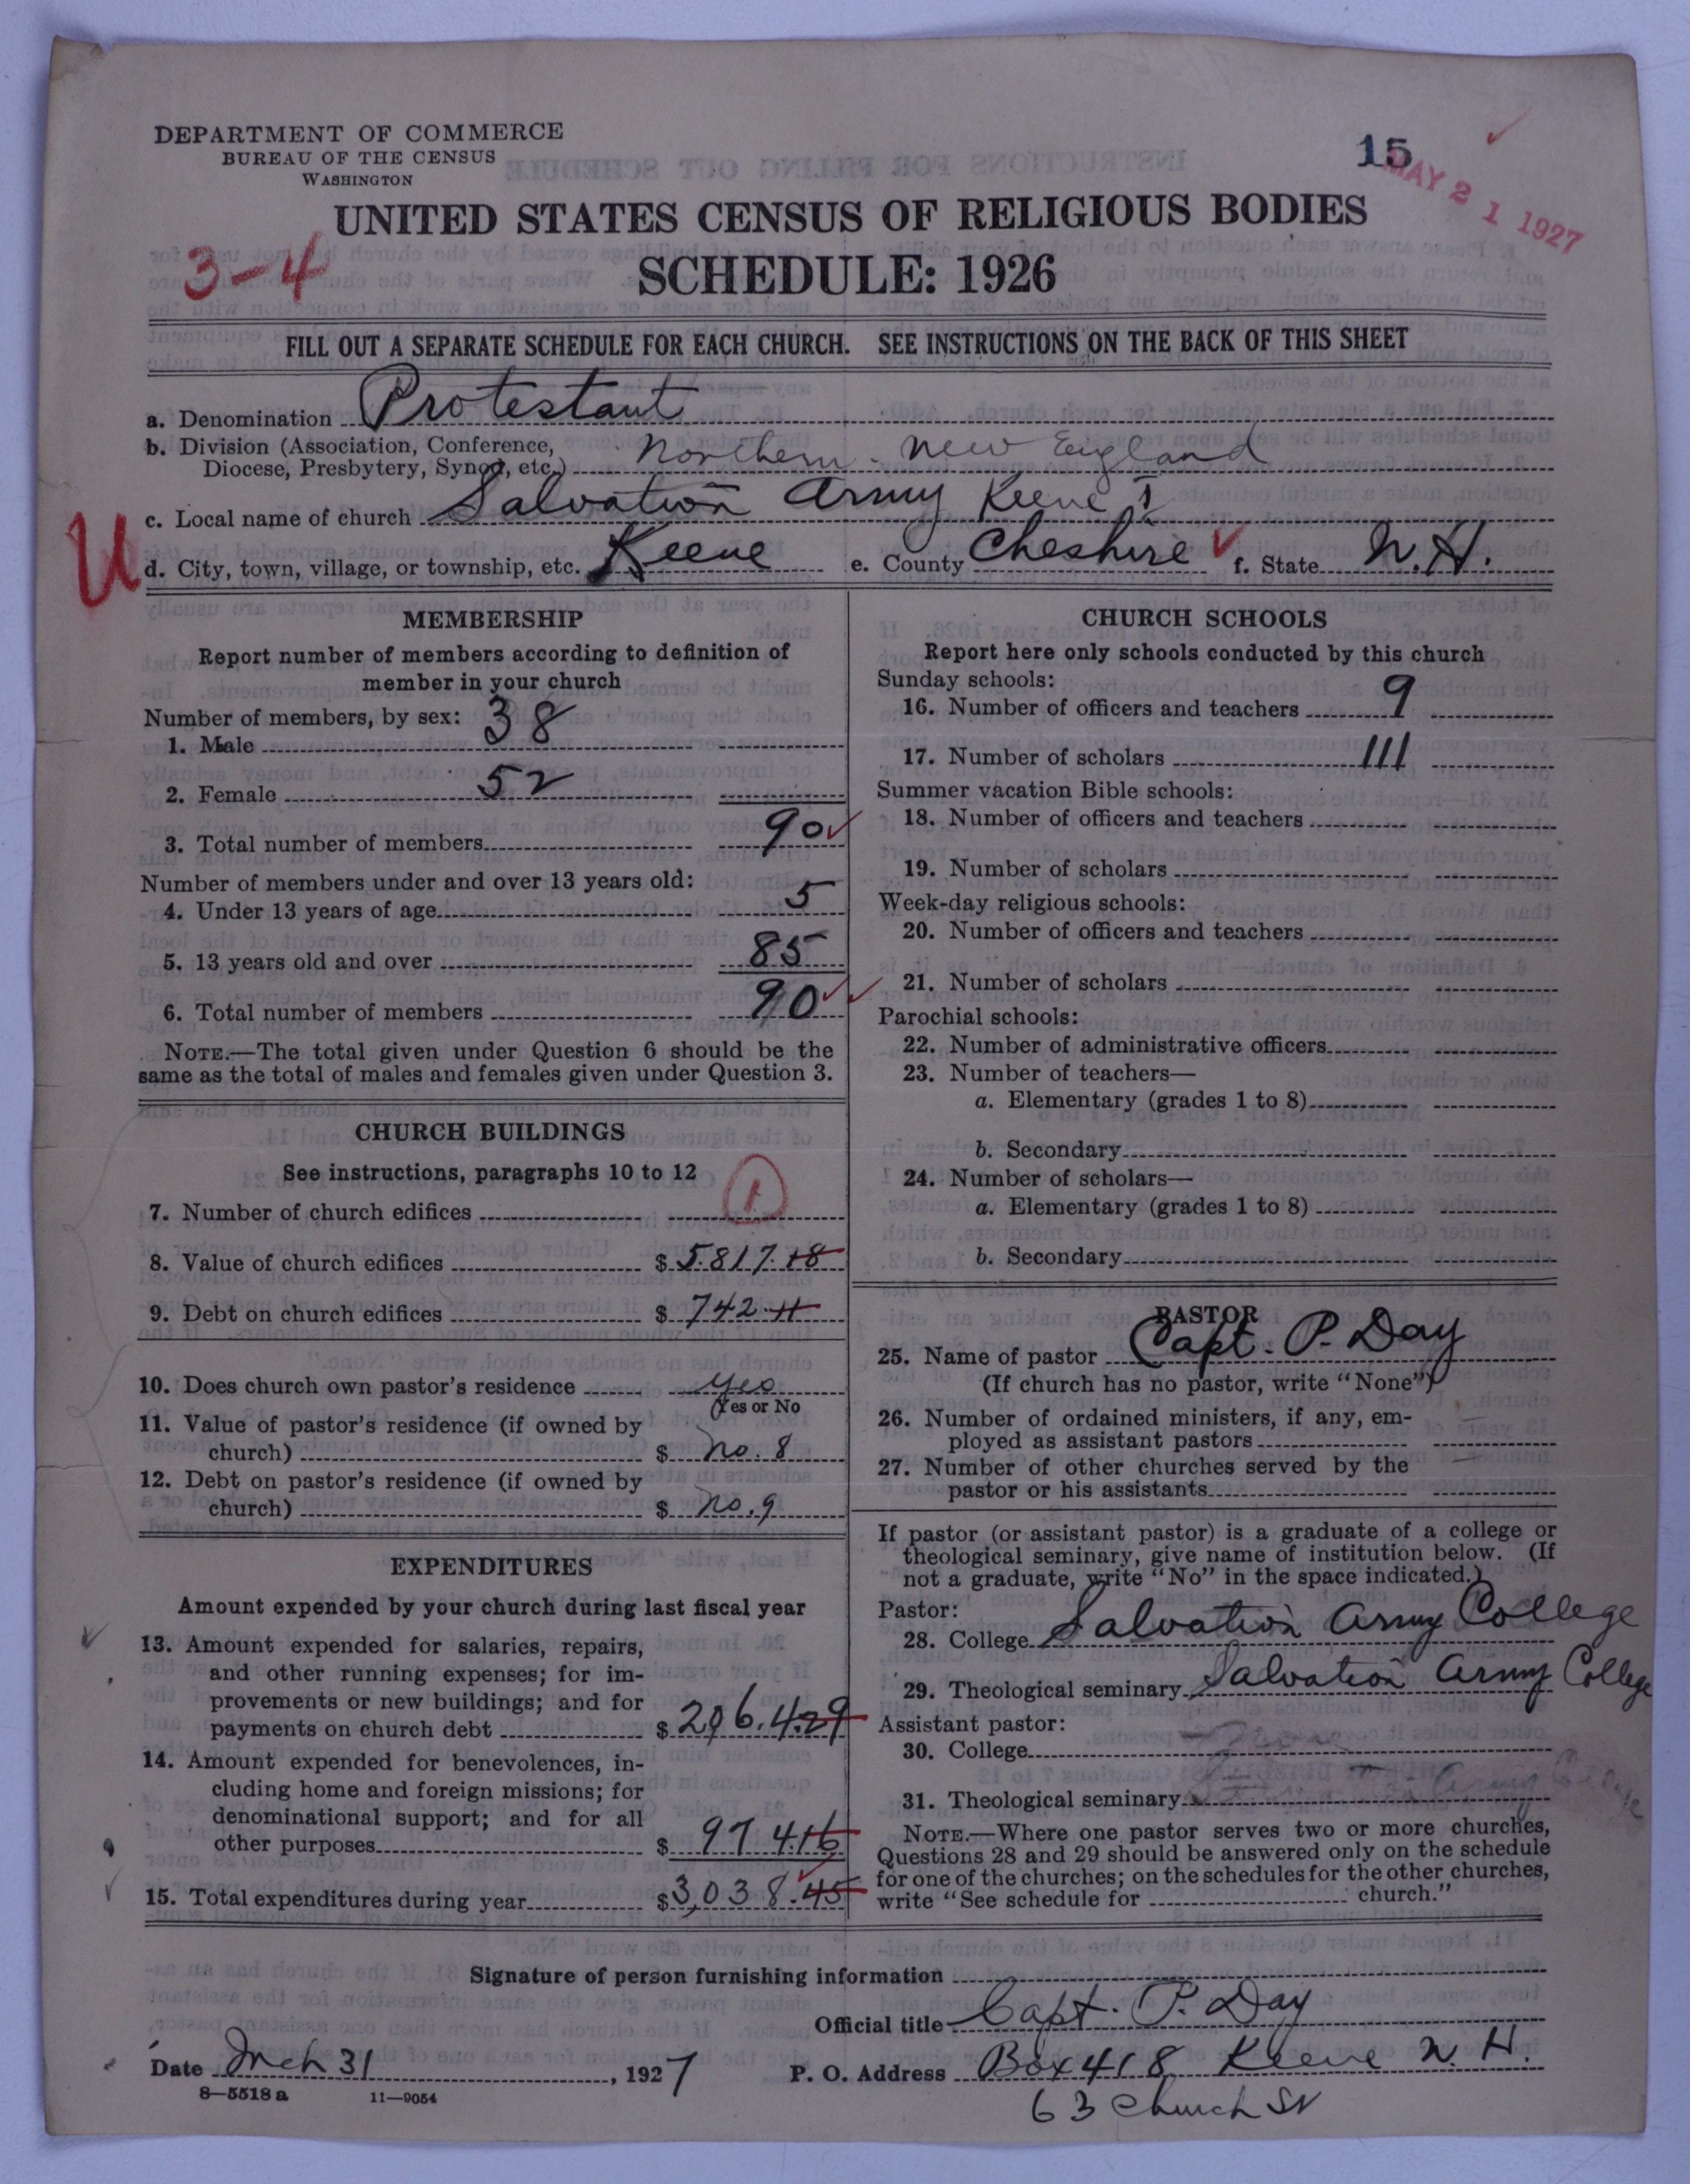 DEPARTMENT OF COMMERCE
BUREAU OF THE CENSUS
WASHINGTON
15
MAY 21 1927
UNITED STATES CENSUS OF RELIGIOUS BODIES
3-4
SCHEDULE: 1926
FILL OUT A SEPARATE SCHEDULE FOR EACH CHURCH. SEE INSTRUCTIONS ON THE BACK OF THIS SHEET
a. Denomination Protestant
b. Division (Association, Conference,
Diocese, Presbytery, Synod, etc.) Northern - New England
c. Local name of church Salvation Army Keene I
U
d. City, town, village, or township, etc. Keene e. County Cheshire f. State N.H.
MEMBERSHIP
Report number of members according to definition of
member in your church
Number of members, by sex:
1. Male 38
2. Female 52
3. Total number of members 90
Number of members under and over 13 years old:
4. Under 13 years of age 5
5. 13 years old and over 85
6. Total number of members 90
NOTE.—The total given under Question 6 should be the
same as the total of males and females given under Question 3.
CHURCH BUILDINGS
See instructions, paragraphs 10 to 12
7. Number of church edifices 1
8. Value of church edifices $ 5.817.18
9. Debt on church edifices $ 742.11
10. Does church own pastor's residence yes
(Yes or No
11. Value of pastor's residence (if owned by
church) $ no. 8
12. Debt on pastor's residence (if owned by
church) $ no. 9
EXPENDITURES
Amount expended by your church during last fiscal year
13. Amount expended for salaries, repairs,
and other running expenses; for im-
provements or new buildings; and for
payments on church debt $ 206.4.29
14. Amount expended for benevolences, in-
cluding home and foreign missions; for
denominational support; and for all
other purposes $ 974.16
15. Total expenditures during year $3,038.45
CHURCH SCHOOLS
Report here only schools conducted by this church
Sunday schools:
16. Number of officers and teachers 9
17. Number of scholars 111
Summer vacation Bible schools:
18. Number of officers and teachers
19. Number of scholars
Week-day religious schools:
20. Number of officers and teachers
21. Number of scholars
Parochial schools:
22. Number of administrative officers
23. Number of teachers—
a. Elementary (grades 1 to 8)
b. Secondary
24. Number of scholars—
a. Elementary (grades 1 to 8)
b. Secondary
PASTOR
25. Name of pastor Capt. P. Day
(If church has no pastor, write "None")
26. Number of ordained ministers, if any, em-
ployed as assistant pastors
27. Number of other churches served by the
pastor or his assistants
If pastor (or assistant pastor) is a graduate of a college or
theological seminary, give name of institution below. (If
not a graduate, write "No" in the space indicated.)
Pastor:
28. College Salvation Army College
29. Theological seminary Salvation Army College
Assistant pastor:
30. College
31. Theological seminary
NOTE.—Where one pastor serves two or more churches,
Questions 28 and 29 should be answered only on the schedule
for one of the churches; on the schedules for the other churches,
write "See schedule for church."
Signature of person furnishing information
Official title Capt. P. Day
Date Mch 31, 1927 P. O. Address Box 418 Keene N. H.
8-5518 a 11-9054
63 Church St